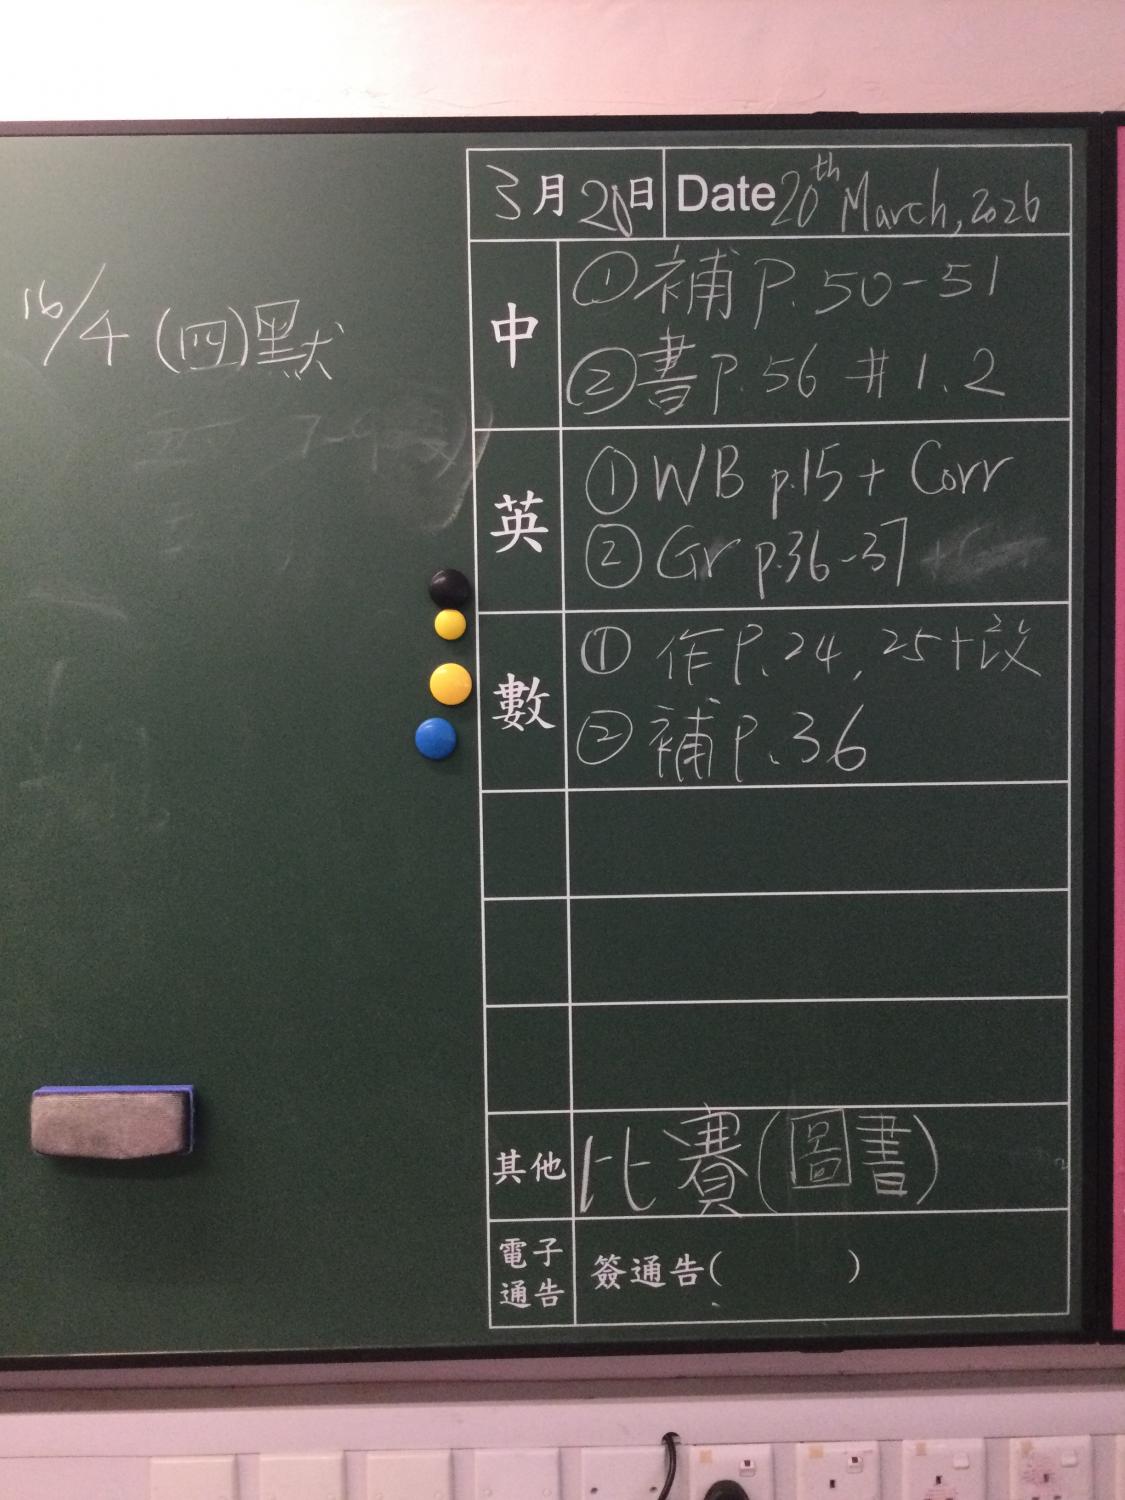 3月20日 Date 20th March, 2026
中
①補 P. 50-51
②書 P. 56 # 1. 2
英
① WB p.15 + Corr
② Gr p.36-37
數
① 作 P. 24, 25 + 改
② 補 P. 36
其他 比賽(圖書)
電子通告 簽通告( )
16/4 (四)默